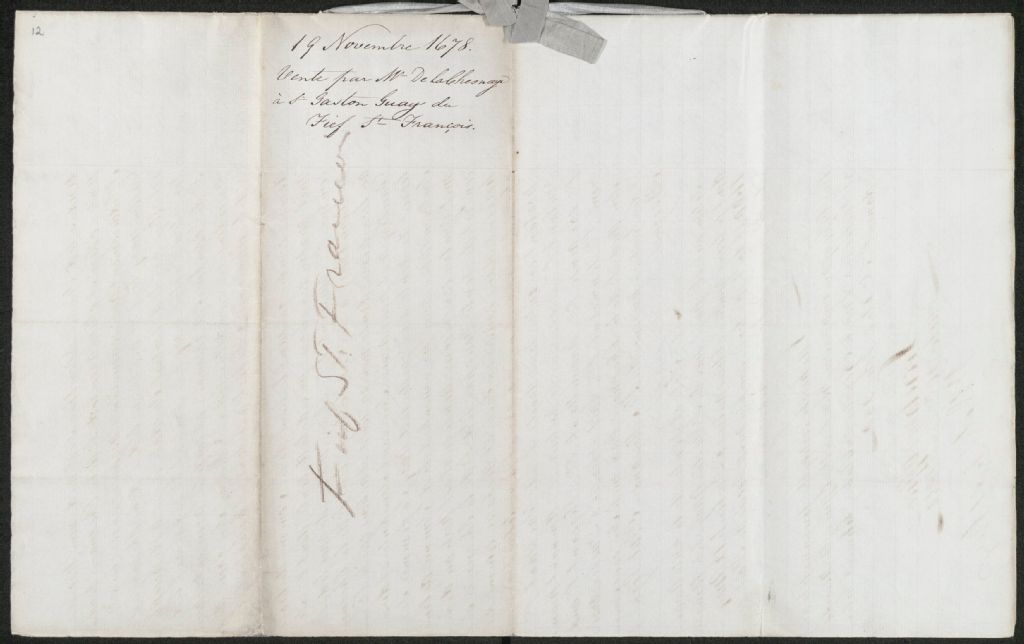 12
19 Novembre 1678.
Vente par Mr De la Chesnaye
à Sr Gaston Guay du
Fief St François.
Fief St. François